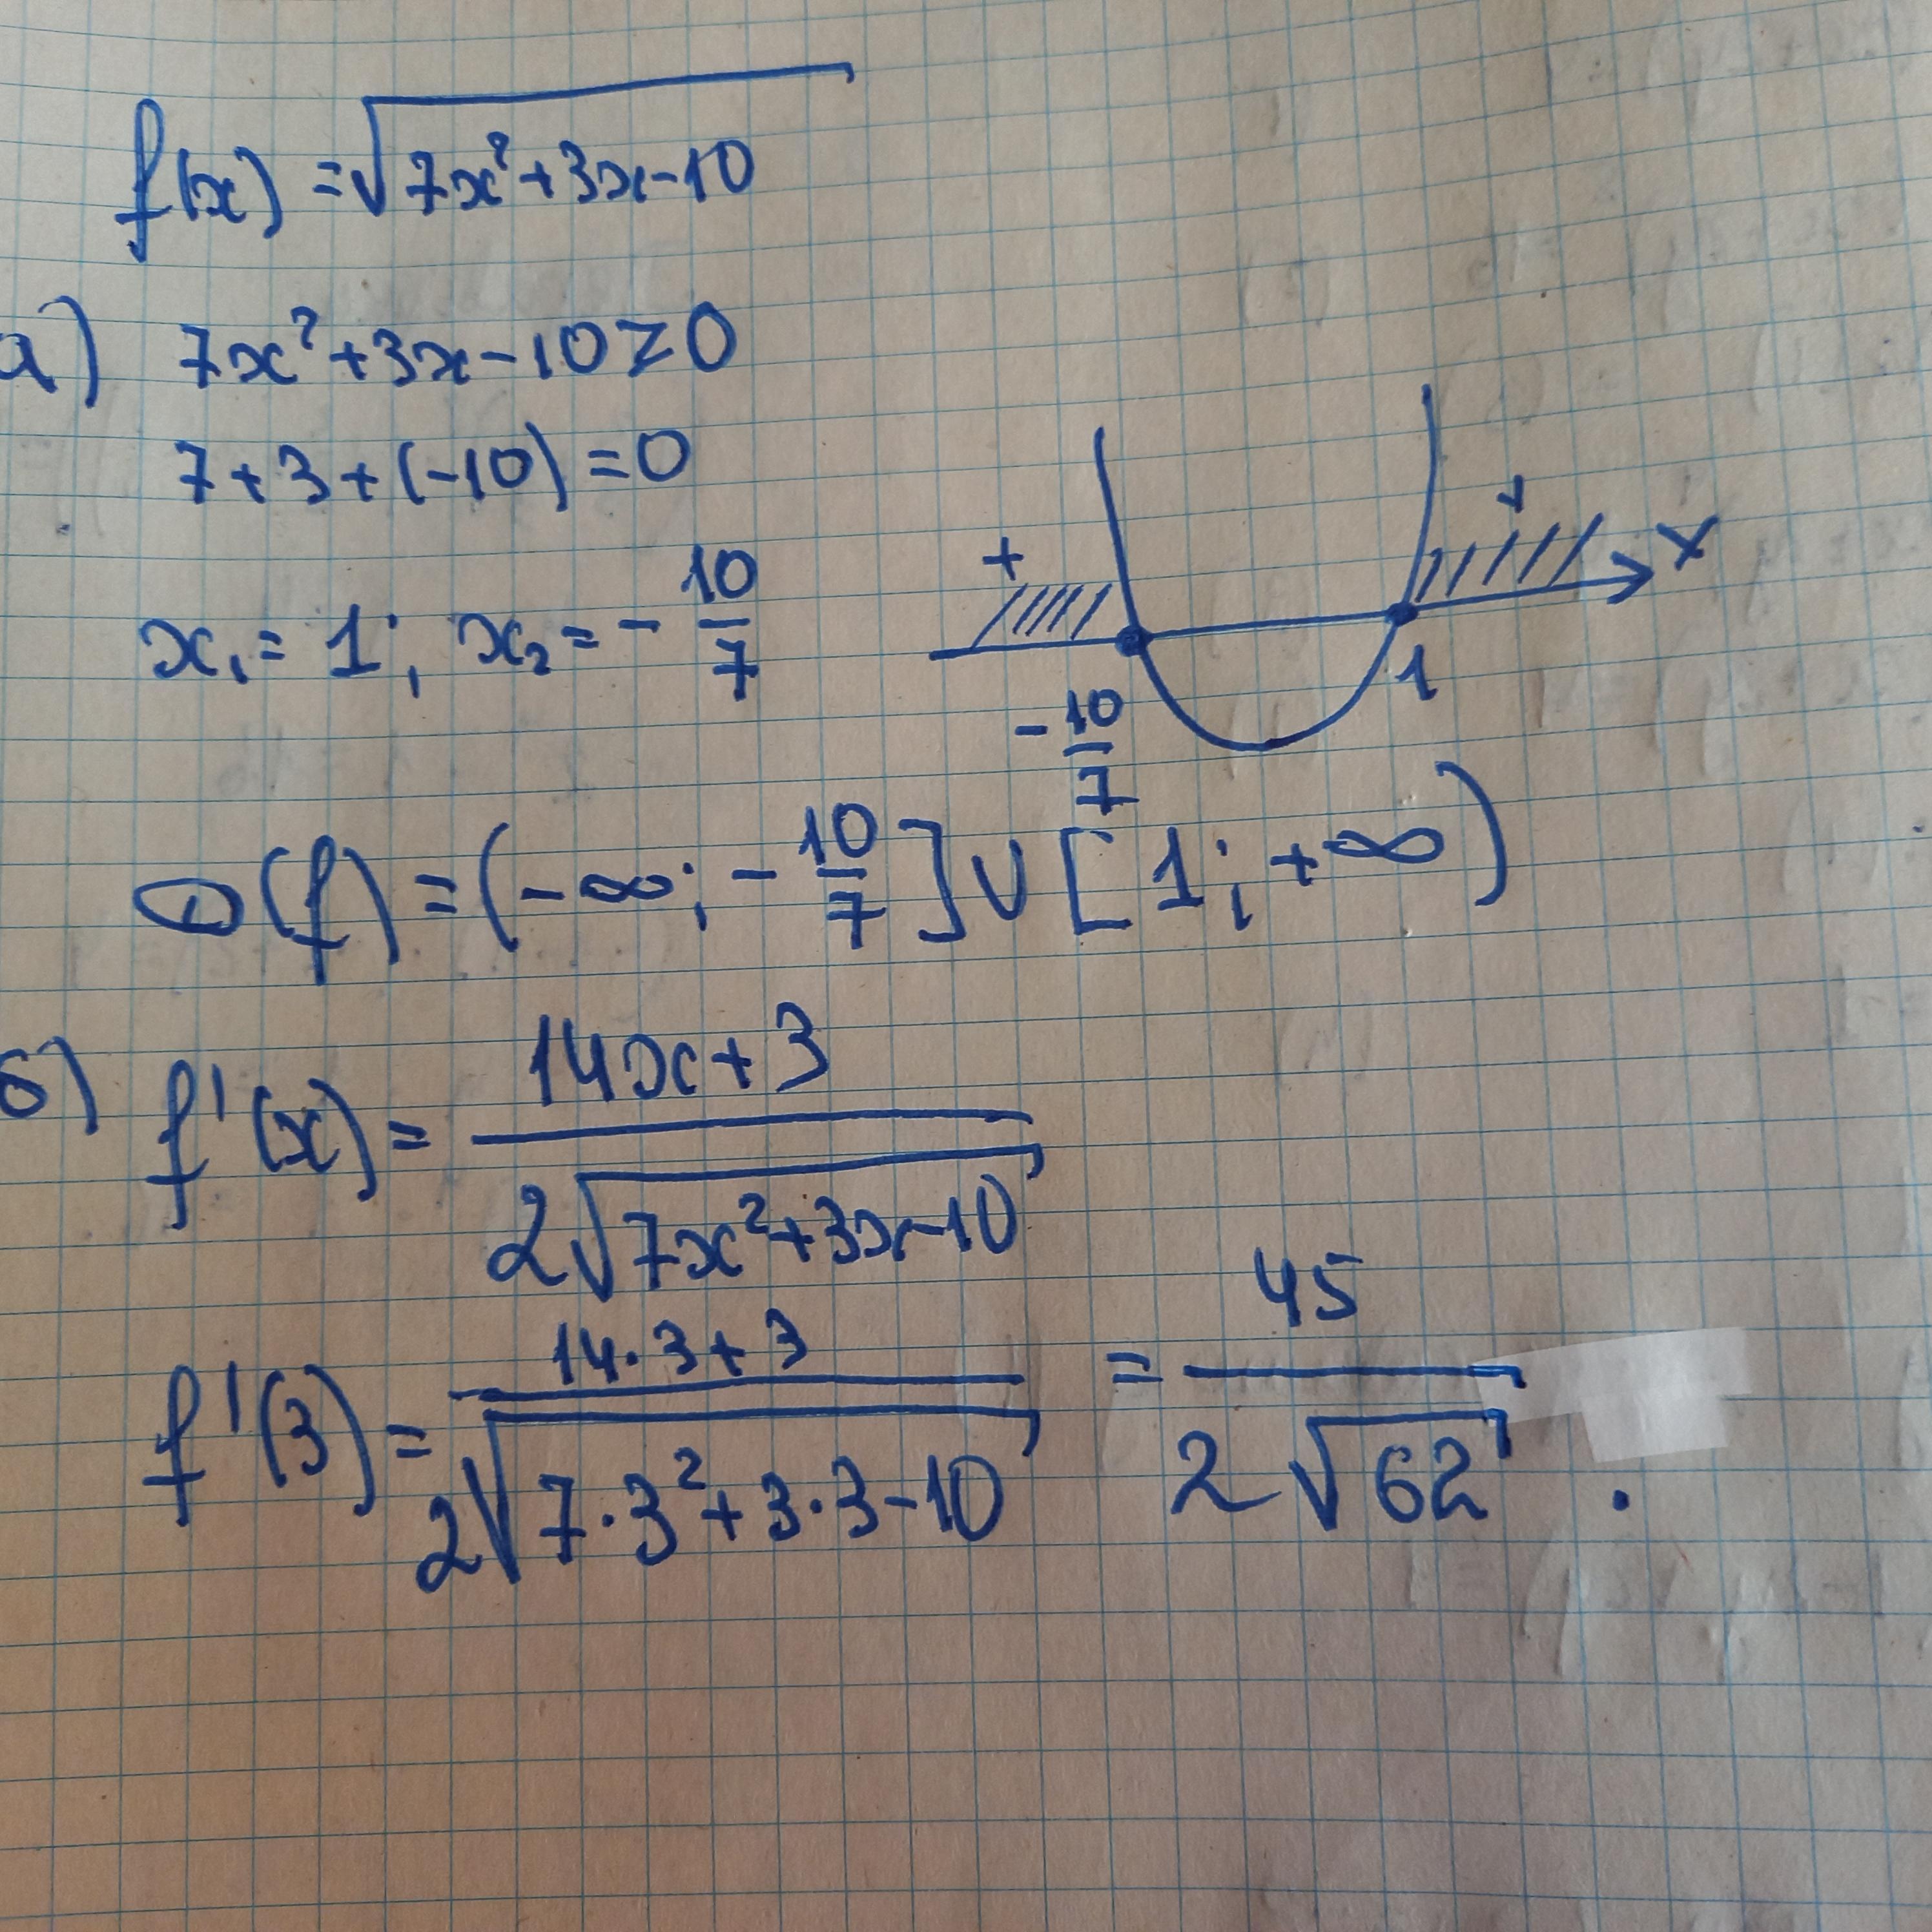 f(x) = √(7x²+3x-10)
а) 7x²+3x-10≥0
7+3+(-10)=0
x₁ = 1; x₂ = -10/7
+ + x
-10/7 1
D(f) = (-∞; -10/7] ∪ [1; +∞)
б) f'(x) = (14x+3)/(2√(7x²+3x-10))
f'(3) = (14·3+3)/(2√(7·3²+3·3-10)) = 45/(2√62).